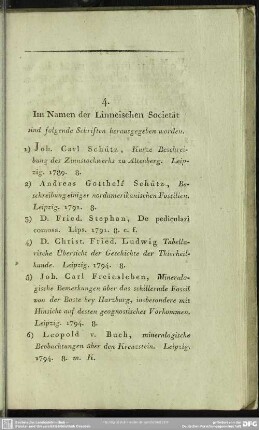 4.
Im Namen der Linneischen Societät
sind folgende Schriften herausgegeben worden.
1) Joh. Carl Schütz, Kurze Beschrei-
bung des Zinnstockwerks zu Altenberg. Leip-
zig. 1789. 8.
2) Andreas Gotthelf Schütz, Be-
schreibung einiger nordamerikanischen Fossilien.
Leipzig. 1791. 8.
3) D. Fried. Stephan, De pediculari
comosa. Lips. 1791. 8. c. f.
4) D. Christ. Fried. Ludwig Tabella-
rische Übersicht der Geschichte der Thierheil-
kunde. Leipzig. 1794. 8.
5) Joh. Carl Freiesleben, Mineralo-
gische Bemerkungen über das schillernde Fossil
von der Baste bey Harzburg, insbesondere mit
Hinsicht auf dessen geognostisches Vorkommen.
Leipzig. 1794. 8.
6) Leopold v. Buch, mineralogische
Beobachtungen über den Kreuzstein. Leipzig.
1794. 8. m. K.
DFG